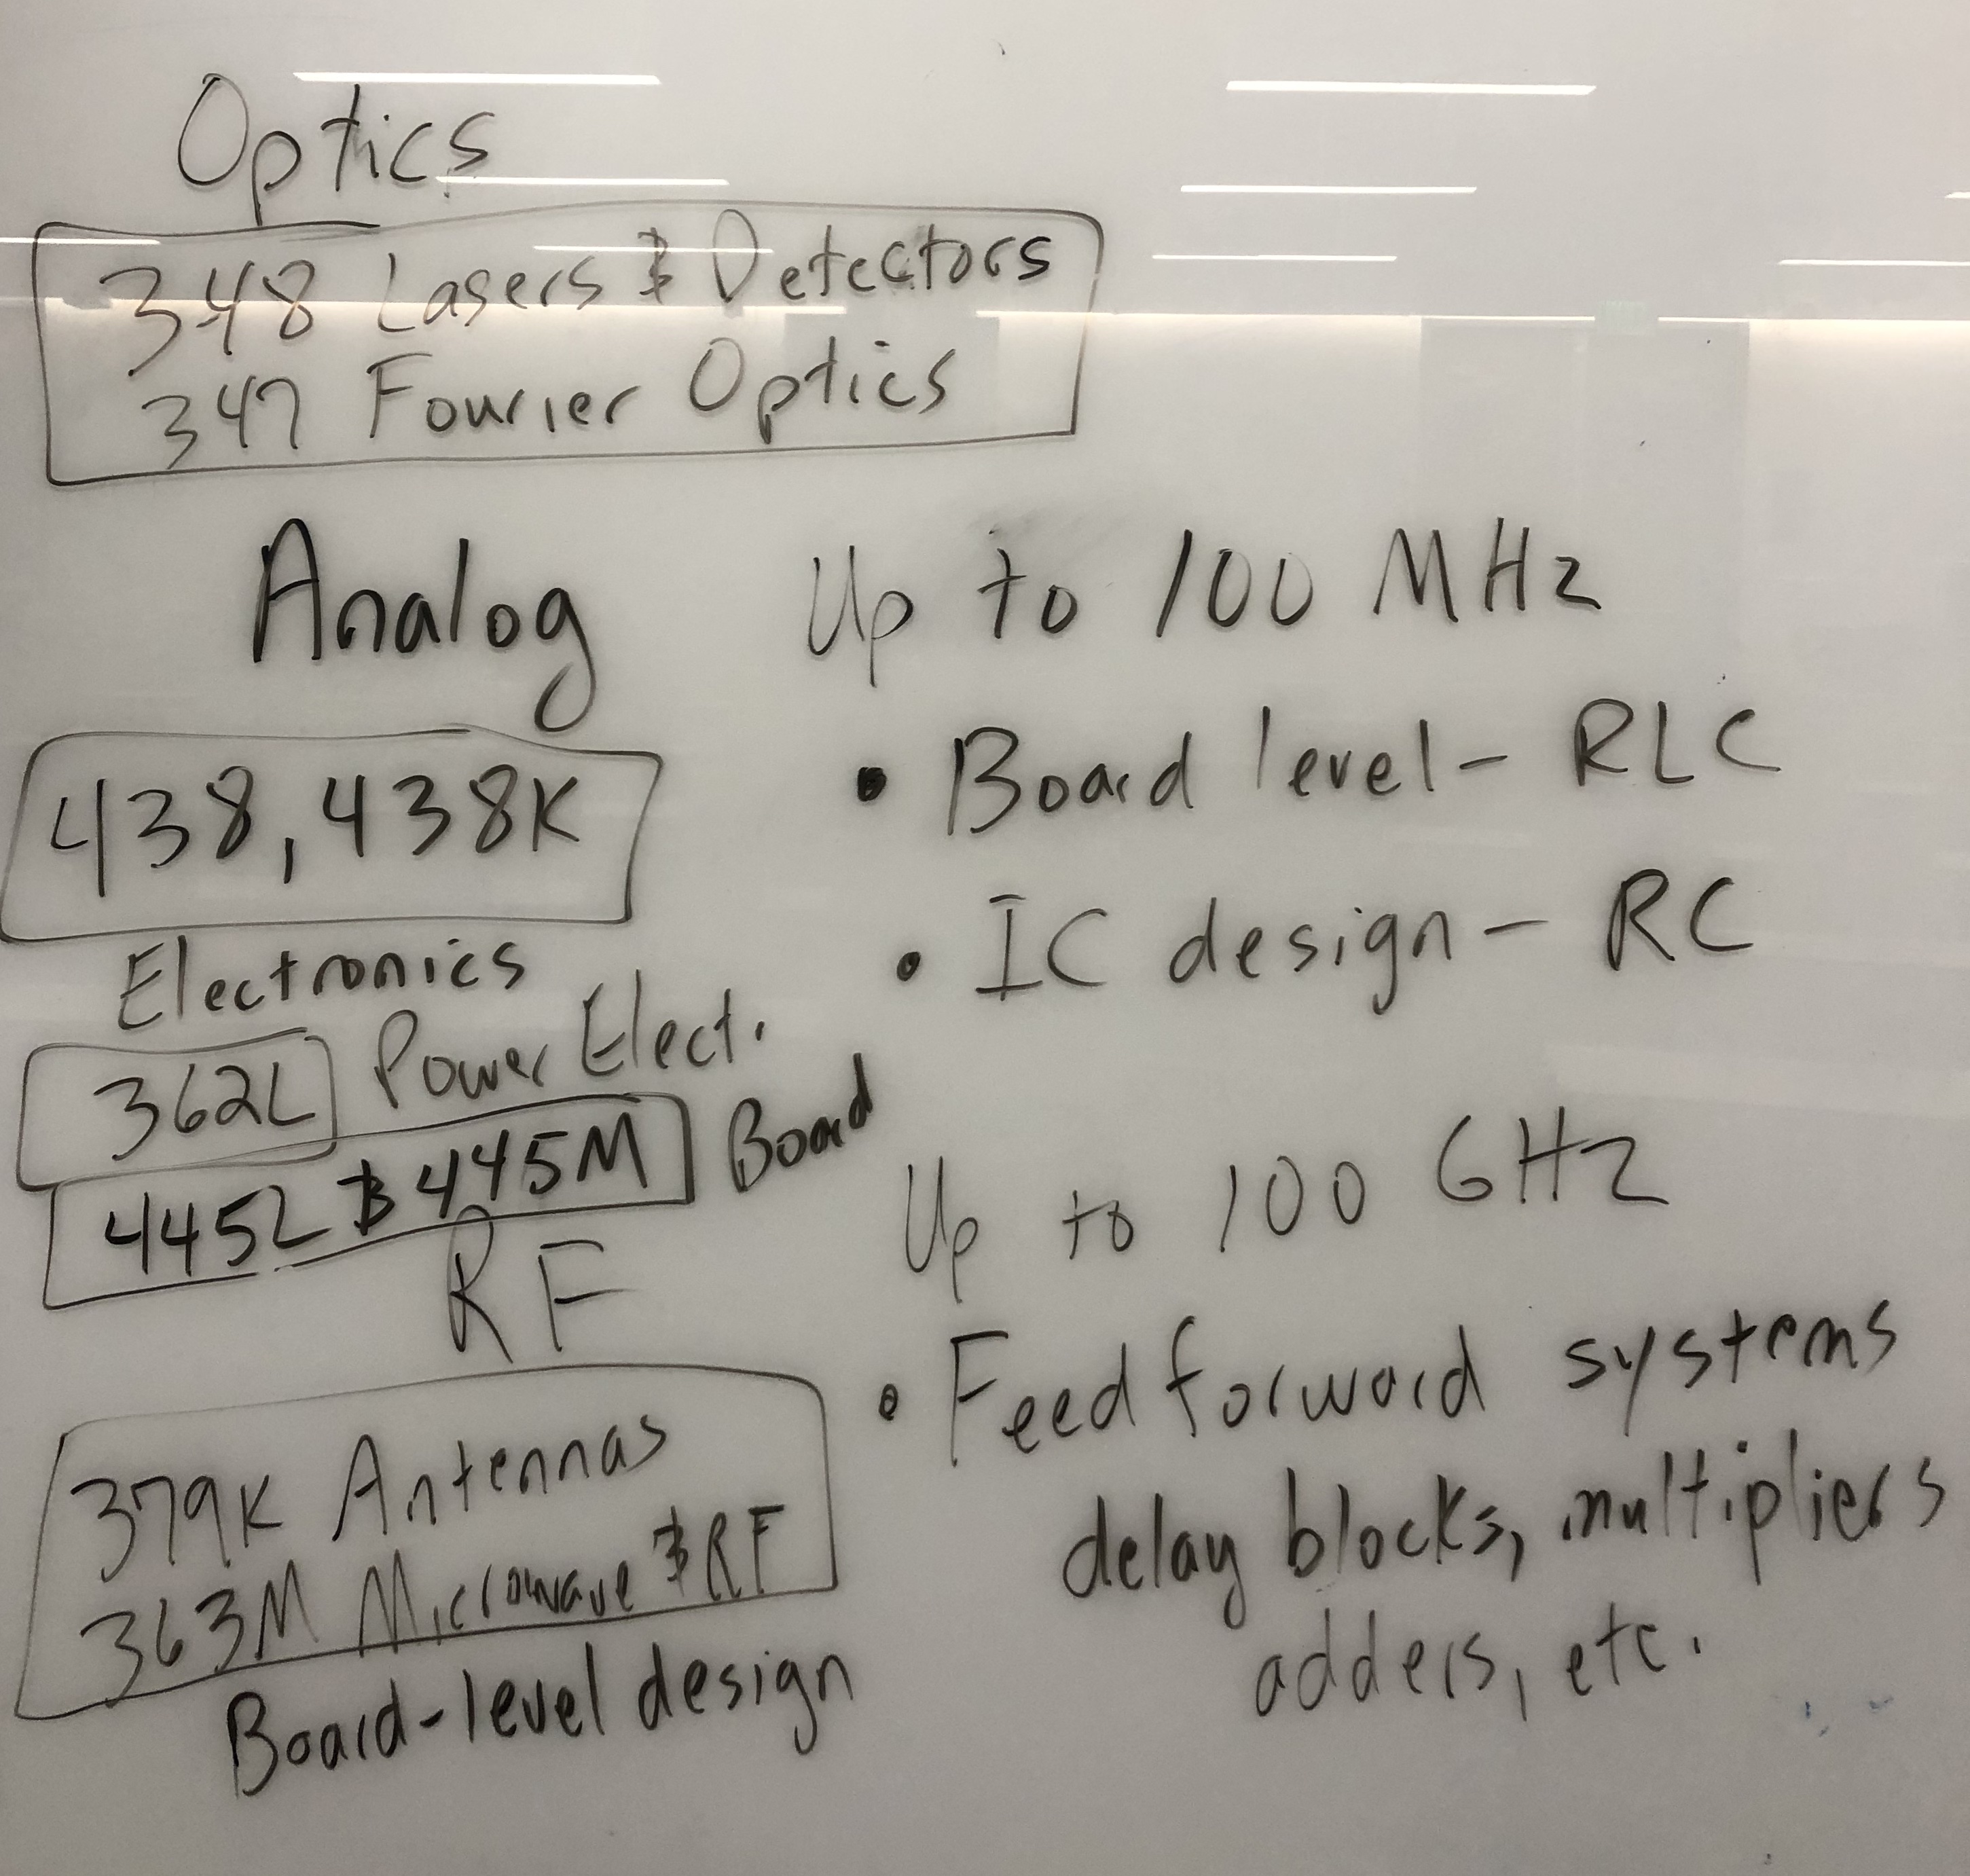 Optics
348 Lasers & Detectors
347 Fourier Optics
Analog
438, 438K
Electronics
362L Power Elect.
445L & 445M Board
Up to 100 MHz
• Board level - RLC
• IC design - RC
RF
379K Antennas
363M Microwave & RF
Board-level design
Up to 100 GHz
• Feedforward systems
delay blocks, multipliers
adders, etc.